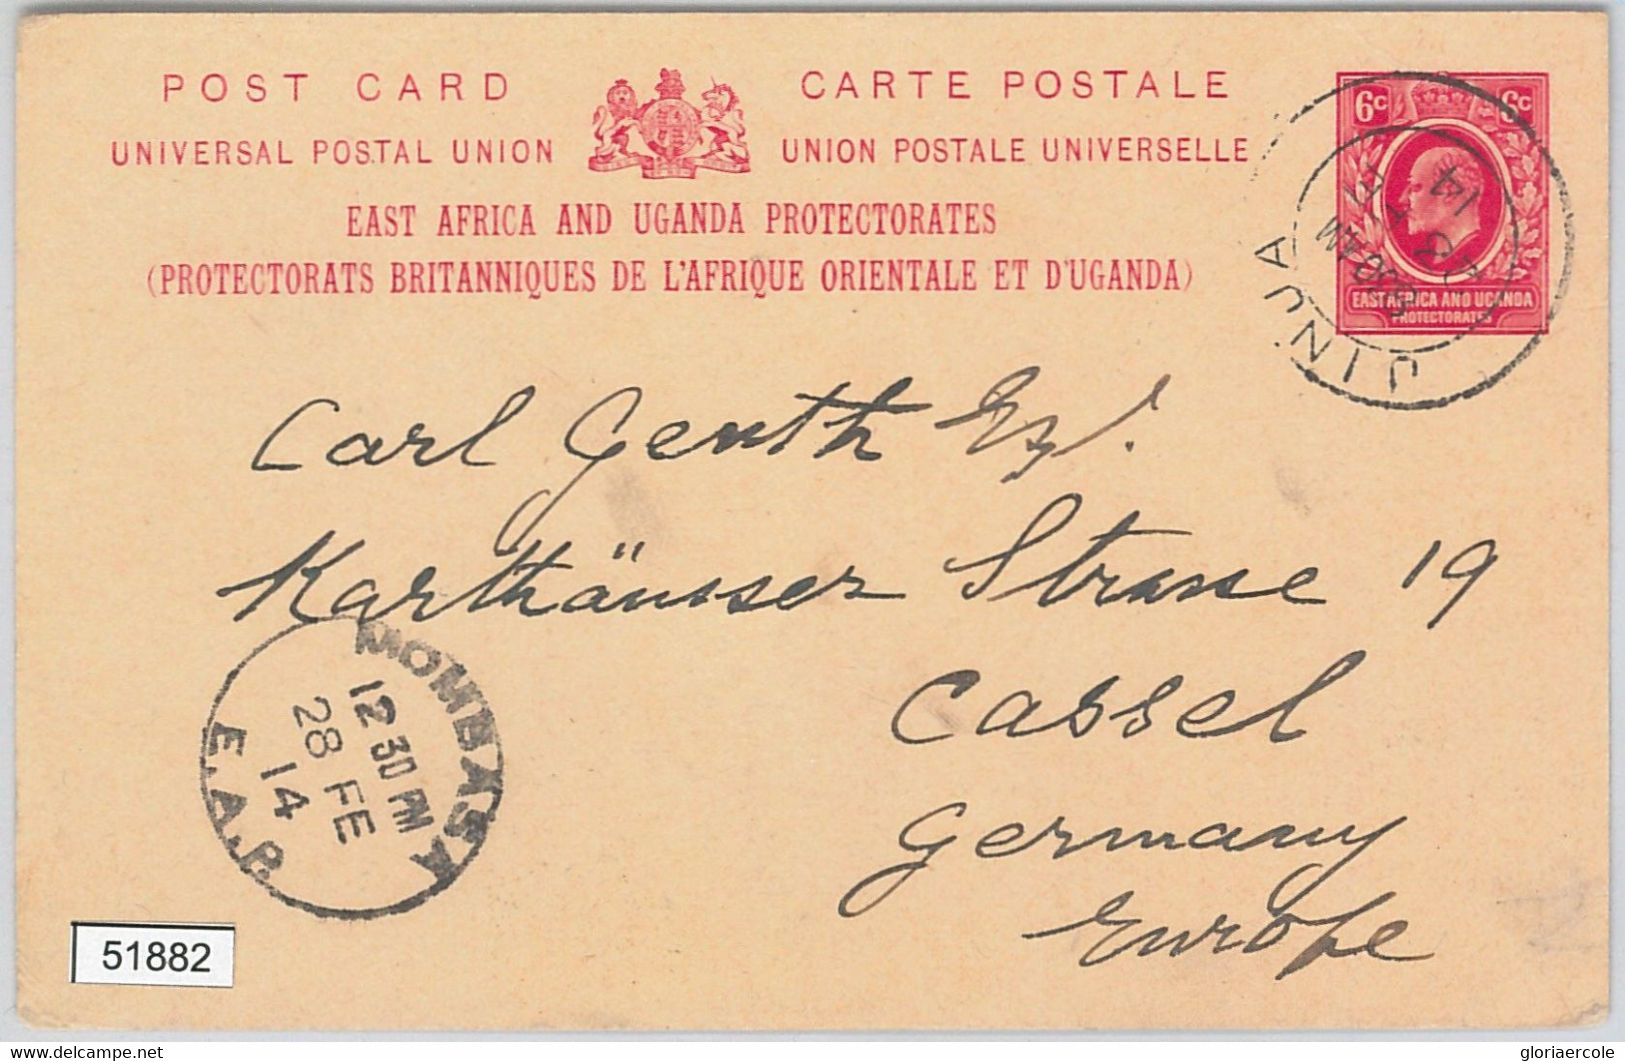 POST CARD
CARTE POSTALE
UNIVERSAL POSTAL UNION
UNION POSTALE UNIVERSELLE
EAST AFRICA AND UGANDA PROTECTORATES
(PROTECTORATS BRITANNIQUES DE L'AFRIQUE ORIENTALE ET D'UGANDA)
6c 6c
EAST AFRICA AND UGANDA
PROTECTORATES
JINJA
14
Carl Genth Esq.
Karthäusser Strasse 19
Cassel
Germany
Europe
MOMBASA
12 30 PM
28 FE
14
E.A.P.
51882
gloriaercole